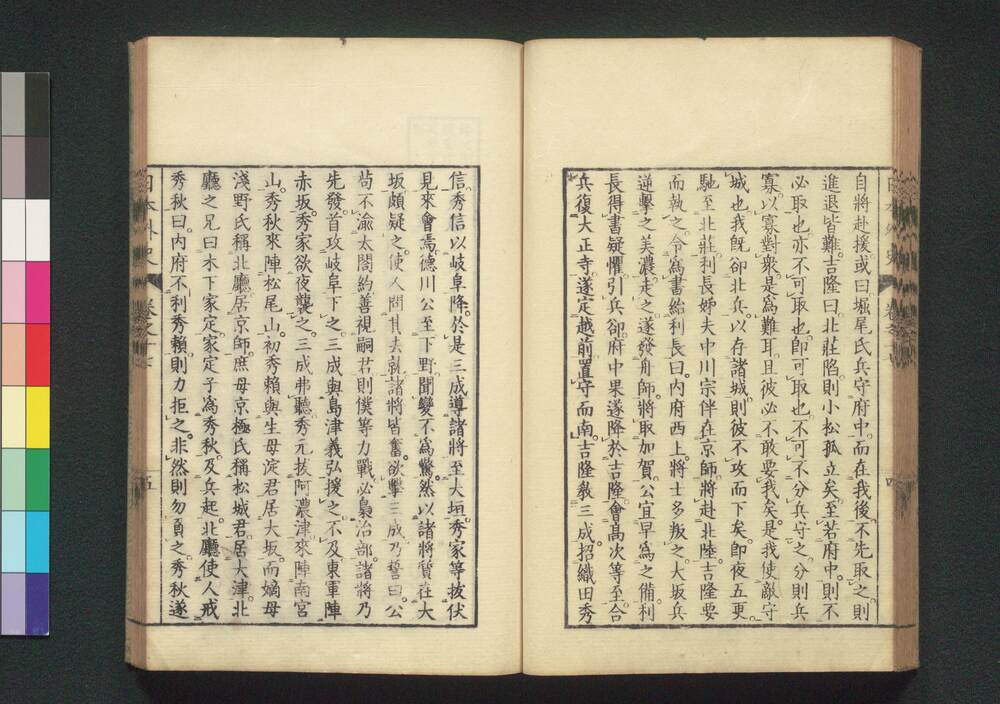 自將赴援。或曰堀尾氏兵守府中。而在我後。不先取之則
進退皆難。吉隆曰。北莊陷則小松孤立矣。至若府中。則不
必取也。亦不可取也。即可取也。不可不分兵守之。分則兵
寡。以寡對衆。是爲難耳。且彼必不敢要我矣。是我使敵守
城也。我既卻北兵。以存諸城。則彼不攻而下矣。即夜五更。
馳至北莊。利長姊夫中川宗伴在京師。將赴北陸。吉隆要
而執之。令爲書紿利長曰。内府西上。將士多叛之。大坂兵
逆擊之美濃。走之。遂發舟師。將取加賀。公宜早爲之備。利
長得書疑懼。引兵卻。府中果遂降於吉隆。會高次等至。合
兵復大正寺。遂定越前。置守而南。吉隆敎三成招織田秀
信。秀信以岐阜降。於是三成導諸將至大垣。秀家等拔伏
見來會焉。德川公至下野。聞變不爲驚。然以諸將質在大
坂。頗疑之。使人問其去就。諸將皆奮。欲擊三成。乃誓曰。公
苟不渝太閤約。善視嗣君。則僕等力戰。必梟治部。諸將乃
先發。首攻岐阜下之。三成與島津義弘援之不及。東軍陣
赤坂。秀家欲夜襲之。三成弗聽。秀元拔阿濃津。來陣南宮
山。秀秋來陣松尾山。初秀賴與生母淀君居大坂。而嫡母
淺野氏稱北廳。居京師。庶母京極氏稱松城君。居大津。北
廳之兄曰木下家定。家定子爲秀秋。及兵起。北廳使人戒
秀秋曰。内府不利秀賴。則力拒之。非然則勿負之。秀秋遂
日本外史 卷之十七 五